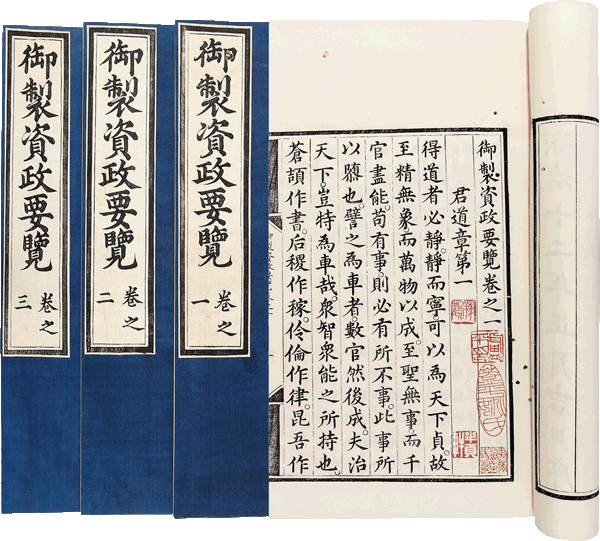 御製資政要覽
卷之一
御製資政要覽
卷之二
御製資政要覽
卷之三
御製資政要覽卷之一
君道章第一
得道者必靜。靜而寧。可以為天下貞。故
至精無象。而萬物以成。至聖無事。而千
官盡能。苟有事。則必有所不事。此事所
以隳也。譬之為車者。數官然後成。夫治
天下。豈特為車哉。衆智衆能之所持也。
蒼頡作書。后稷作稼。伶倫作律。昆吾作